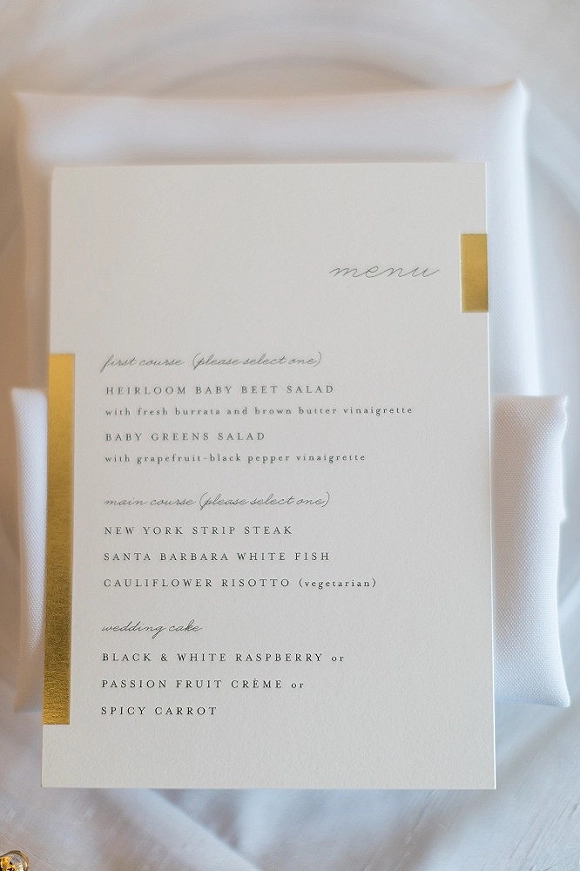 menu
first course (please select one)
HEIRLOOM BABY BEET SALAD
with fresh burrata and brown butter vinaigrette
BABY GREENS SALAD
with grapefruit-black pepper vinaigrette
main course (please select one)
NEW YORK STRIP STEAK
SANTA BARBARA WHITE FISH
CAULIFLOWER RISOTTO (vegetarian)
wedding cake
BLACK & WHITE RASPBERRY or
PASSION FRUIT CRÈME or
SPICY CARROT